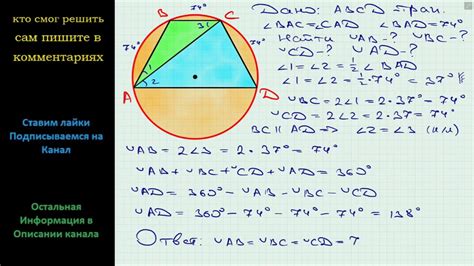 кто смог решить
сам пишите в
комментариях
Ставим лайки
Подписываемся на
Канал
Остальная
Информация в
Описании канала
74°
B
C
74°
74°
3
1
2
A
D
Дано: ABCD-трап.
∠BAC=∠CAD ∠BAD=74°
Найти ◡AB-? ◡BC-?
◡CD-? ◡AD-?
∠1=∠2=½∠BAD
∠1=∠2=½·74°=37°
◡BC=2∠1=2·37°=74°
◡CD=2∠2=2·37°=74°
BC∥AD → ∠2=∠3
◡AB=2∠3=2·37°=74°
◡AB+◡BC+◡CD+◡AD=360°
◡AD=360°-◡AB-◡BC-◡CD
◡AD=360°-74°-74°-74°=138°
Ответ: ◡AB=◡BC=◡CD=7